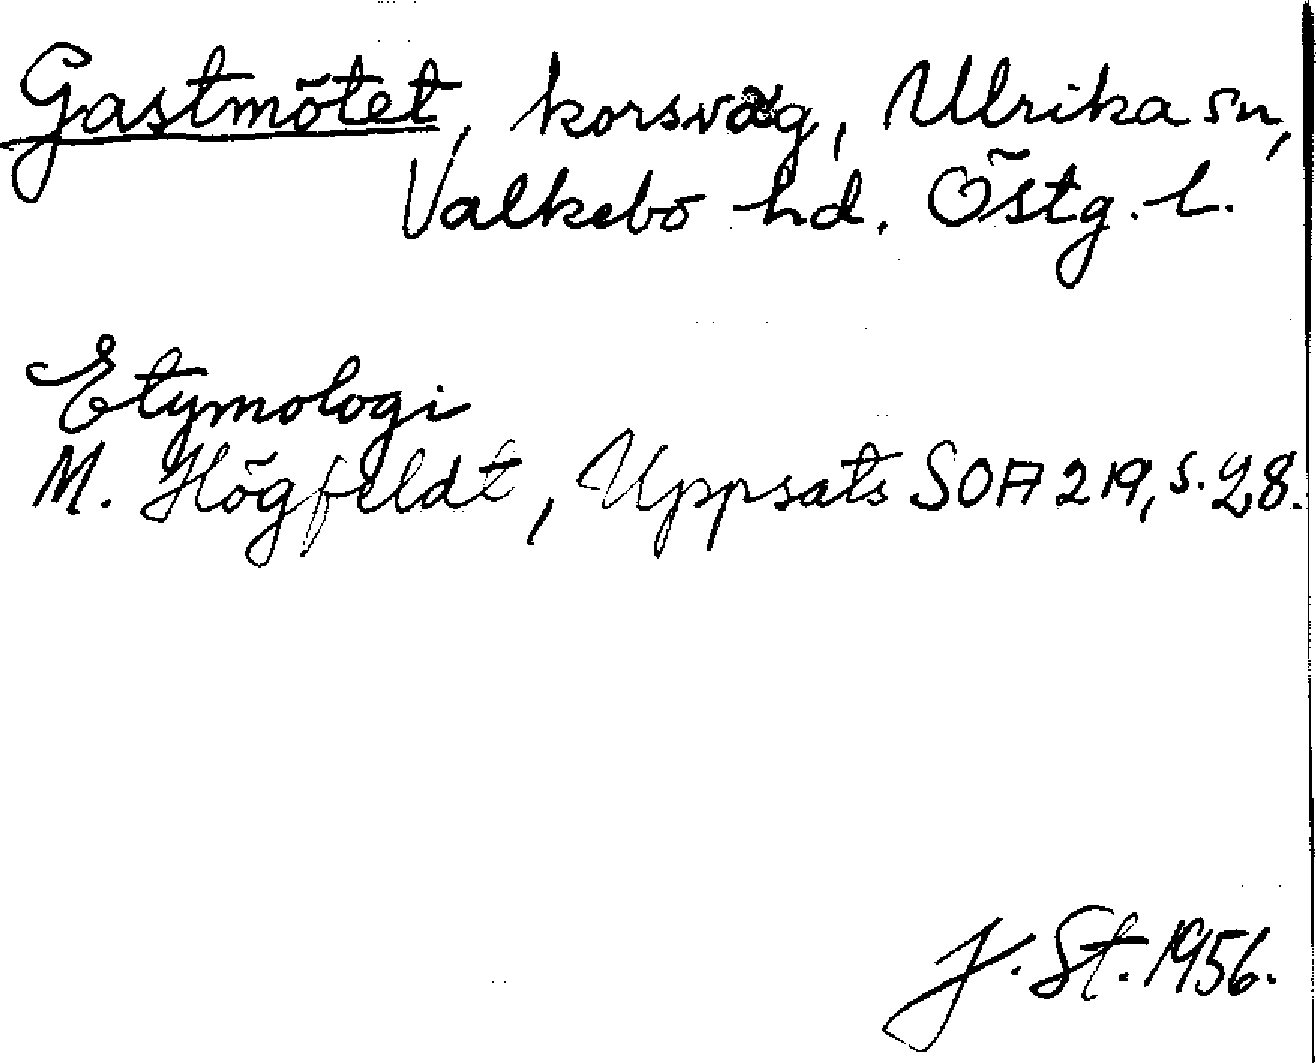 Gastmötet, korsväg, Ulrika sn,
Valkebo hd. Östg. l.
Etymologi
M. Högfeldt, Uppsats SOA 219, s. 28.
J. St. 1956.